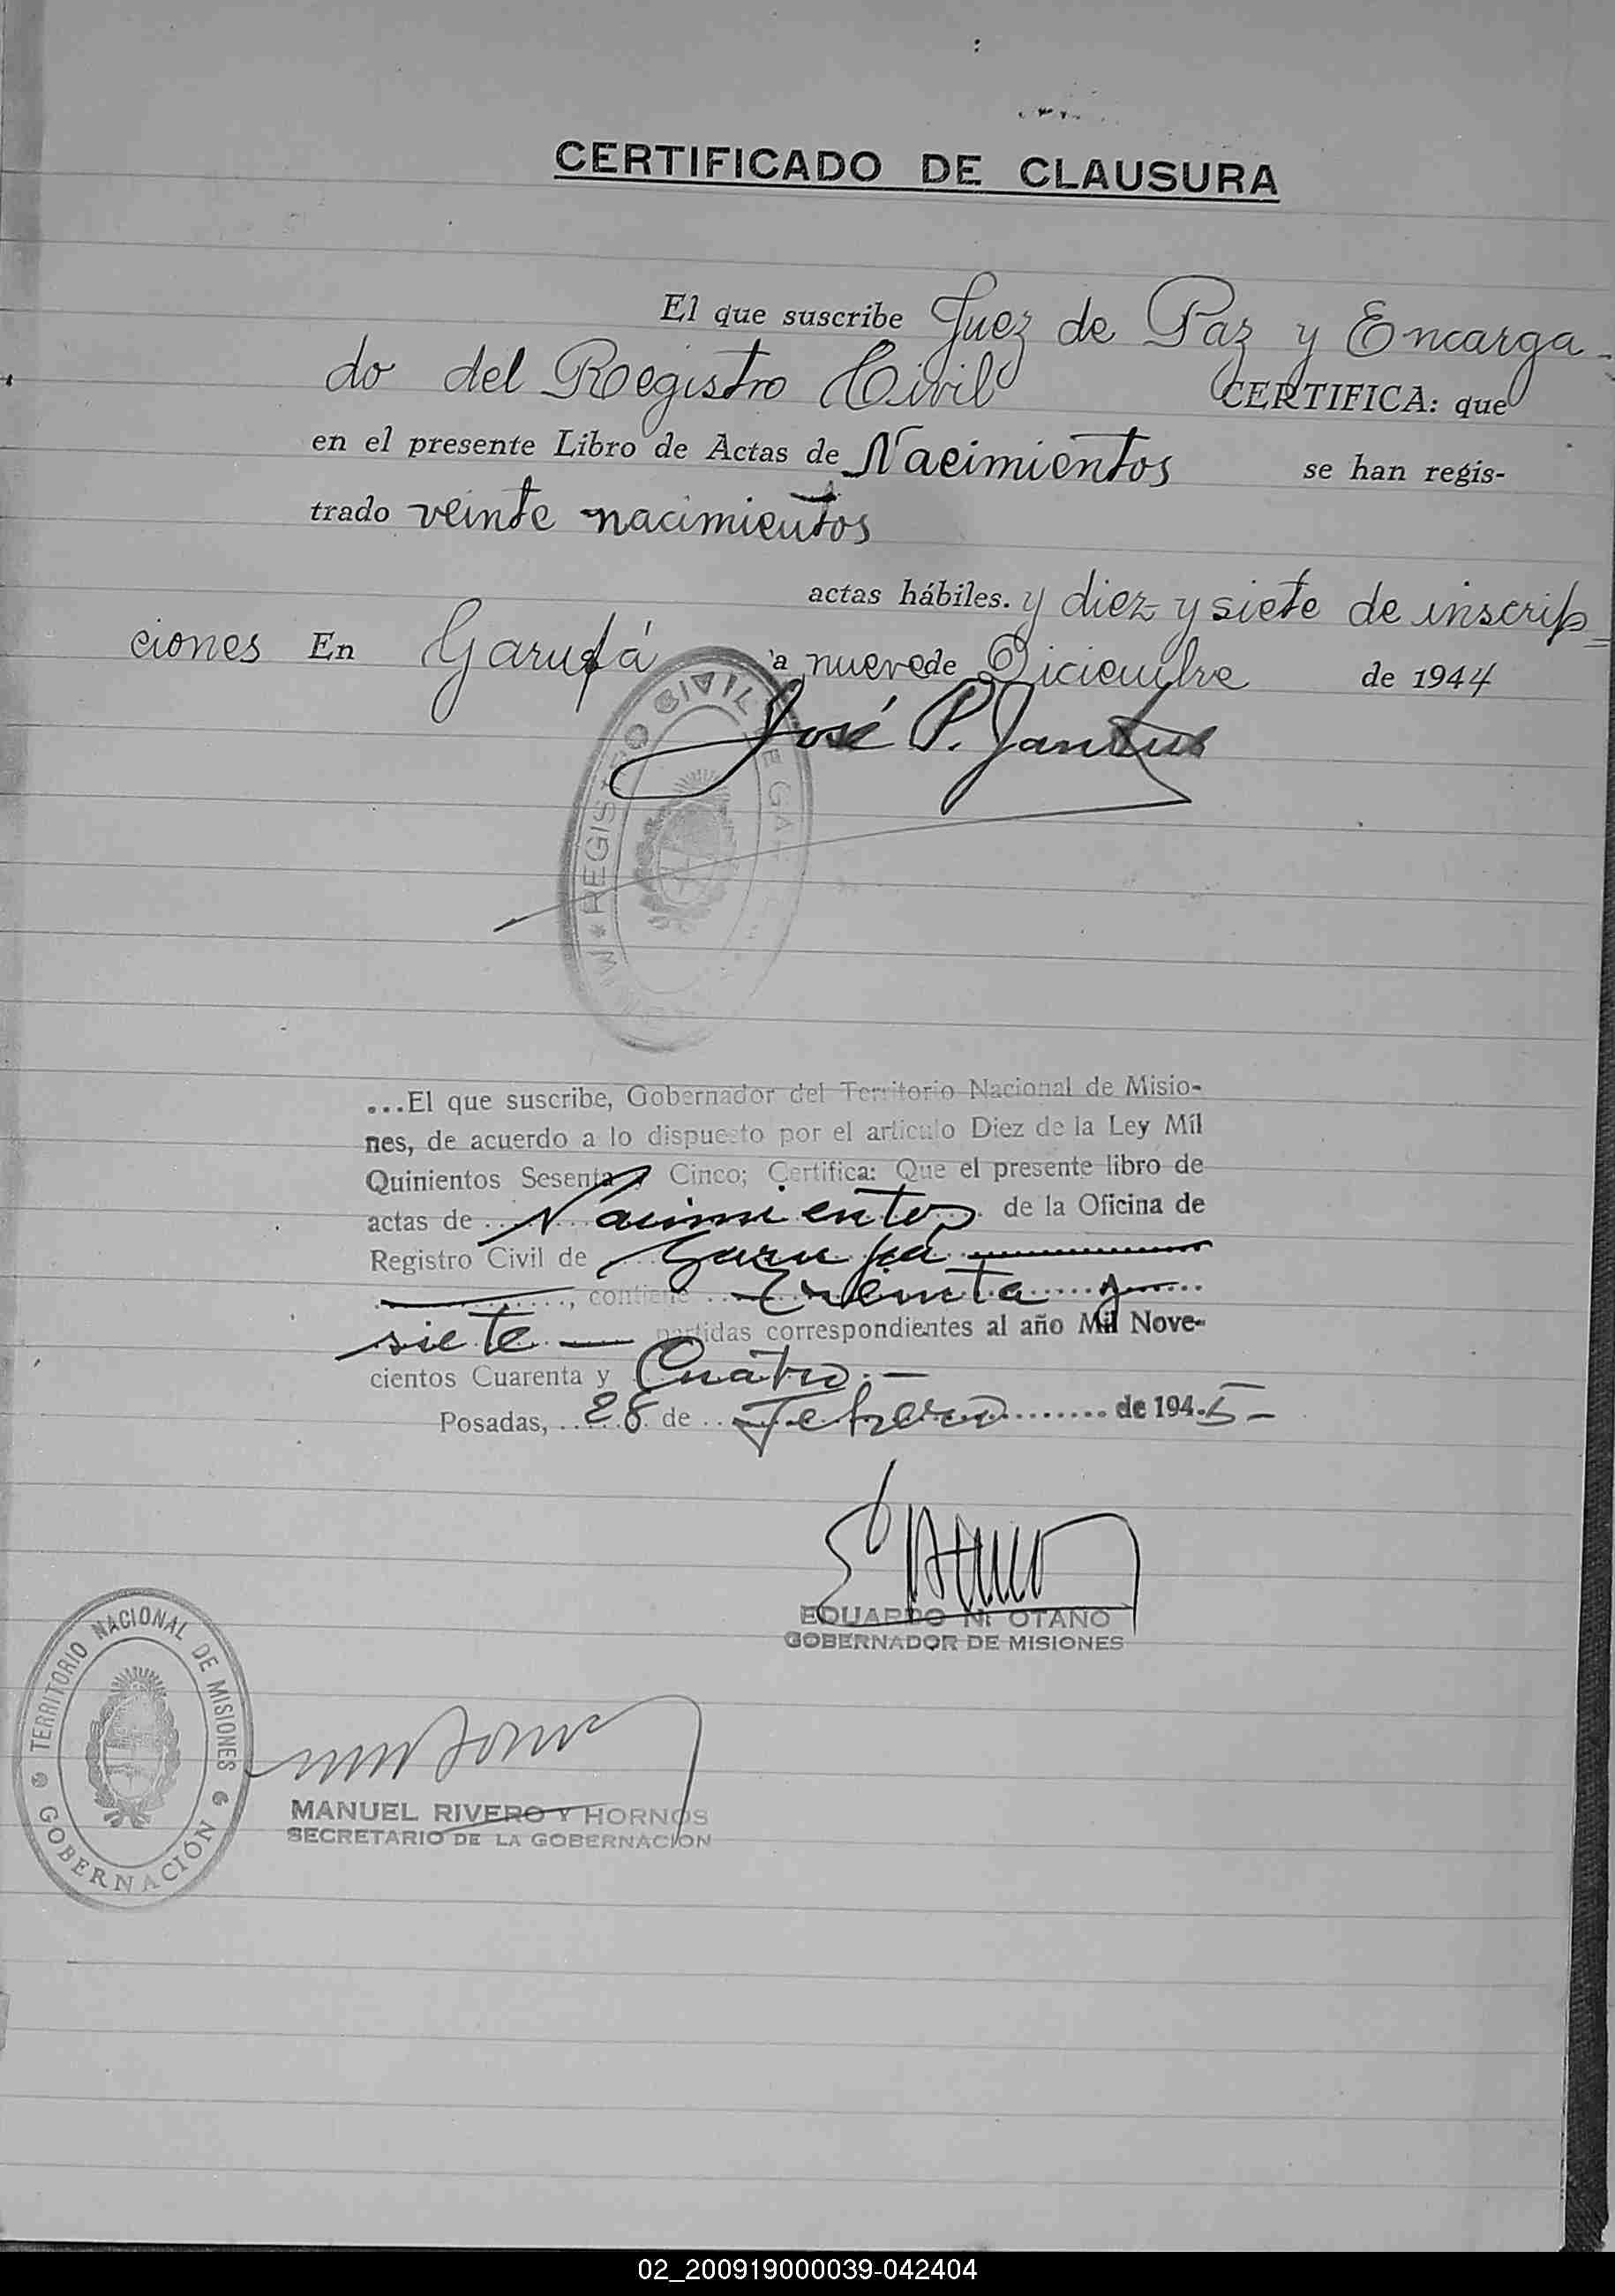 CERTIFICADO DE CLAUSURA
El que suscribe Juez de Paz y Encarga-
do del Registro Civil CERTIFICA: que
en el presente Libro de Actas de Nacimientos se han regis-
trado veinte nacimientos
actas hábiles. y diez y siete de inscrip=
ciones En Garupá a nueve de Diciembre de 1944
José P.
REGISTRO CIVIL DE
...El que suscribe, Gobernador del Territorio Nacional de Misio-
nes, de acuerdo a lo dispuesto por el articulo Diez de la Ley Mil
Quinientos Sesenta y Cinco; Certifica: Que el presente libro de
actas de Nacimientos de la Oficina de
Registro Civil de Garupá
, contiene treinta y
siete — partidas correspondientes al año Mil Nove-
cientos Cuarenta y Cuatro.—
Posadas, 28 de Febrero de 1945—
EDUARDO N. OTAÑO
GOBERNADOR DE MISIONES
TERRITORIO NACIONAL DE MISIONES
GOBERNACIÓN
MANUEL RIVERO Y HORNOS
SECRETARIO DE LA GOBERNACION
02_200919000039-042404